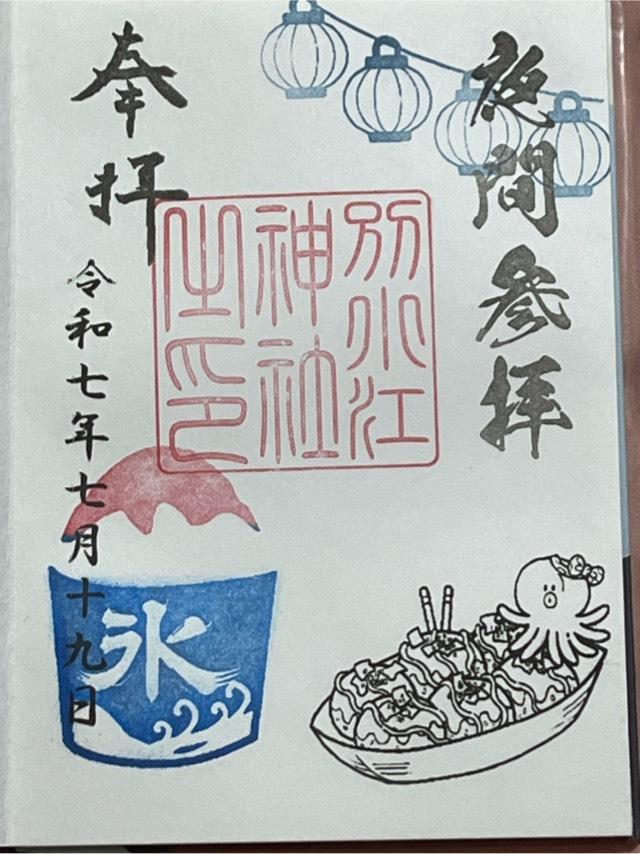 夜間参拝
別小江
神社
之印
奉拝
令和七年七月十九日
氷